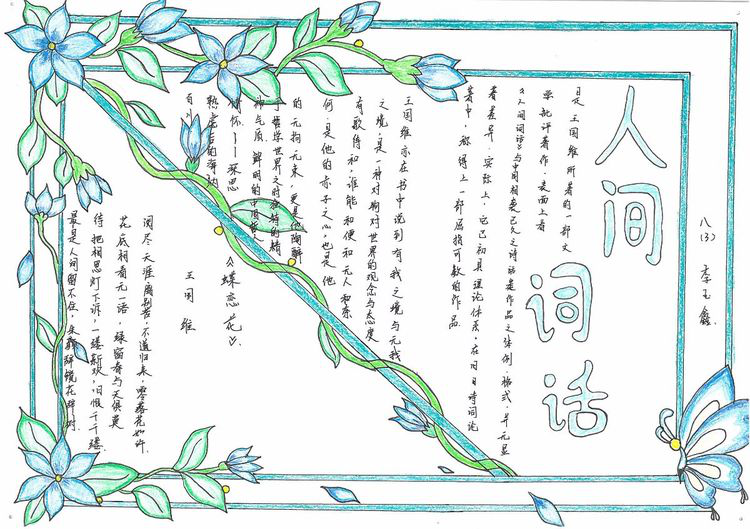 八(3) 李玉鑫
人间
词话
是王国维所著的一部文
学批评著作,表面上看
《人间词话》与中国相袭已久之诗话类作品之体例、格式,并无显
著差异,实际上,它已初具理论体系,在旧日诗词论
著中,称得上一部屈指可数的作品
王国维亦在书中说到有我之境与无我
之境,是一种对物对世界的观念与态度
有歌待和,谁能和便和无人和奈
何,是他的赤子之心,也是他
的无拘无束,更是他陶醉
于哲学世界之时独特的精
神气质,鲜明的中国
情怀——深思
熟虑后的海纳
百川
《蝶恋花》
王国维
阅尽天涯离别苦,不道归来,零落花如许
花底相看无一语,绿窗春与天俱莫
待把相思灯下诉,一缕新欢,旧恨千千缕
最是人间留不住,朱颜辞镜花辞树